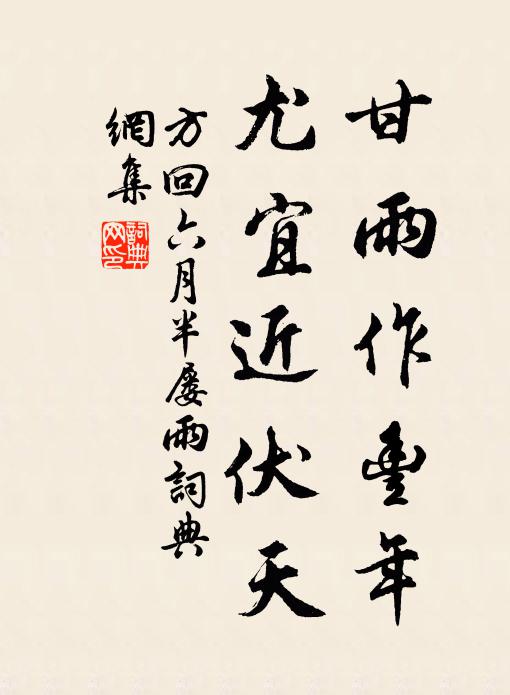 甘雨作豐年
尤宜近伏天
方回六月半屡雨詞典
網集
詞典
网印